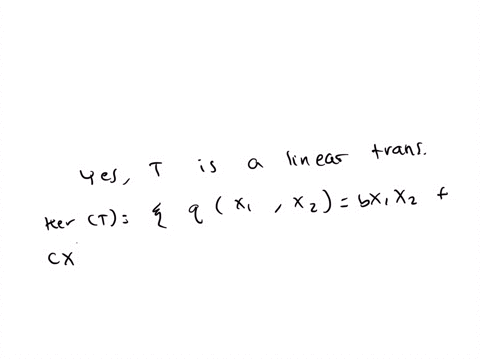 Yes, T is a linear trans.
ker (T) = { q ( x₁ , x₂ ) = bx₁ x₂ +
cx